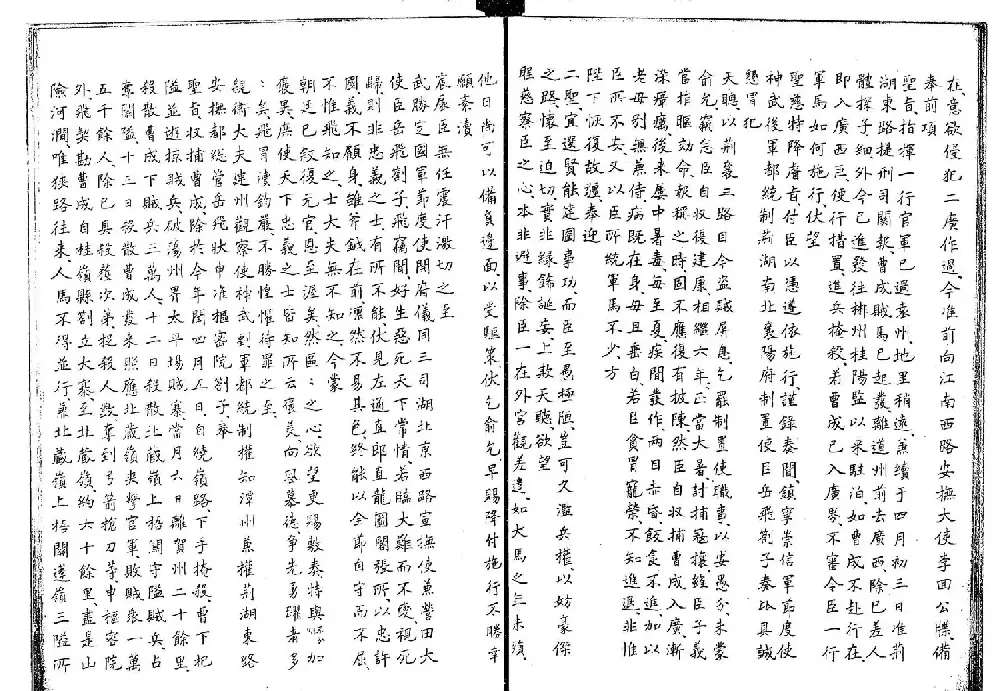 在、意欲侵犯二廣作過、今准前向江南西路安撫大使李回公牒、備
奉前項
聖旨、指揮一行官軍已過袁州、地里稍遠、兼續于四月初三日准荊
湖東路提刑司關報曹成賊馬已起發離道州前去廣西、除已差人
體探子細外、今已進發往郴州桂陽監以來駐泊、如曹成不赴行在、
即入廣西、臣便行措置進兵掩殺、若曹成已入廣界、不審今臣一行
軍馬如何施行、伏望
聖慈特降睿旨付臣、以憑遵依施行、謹錄奏聞、鎮寧崇信軍節度使
神武後軍都統制荊湖南北襄陽府制置使臣岳飛劄子奏、臣具誠
懇、冒犯
天聽、以荊襄三路目今盜賊屏息、乞罷制置使職事、以安愚分、未蒙
俞允、竊念臣自收復建康、相繼六年、正當大暑、討捕惡攘、經臣子義
當捐軀効命、報稱之時、固不應復有披陳、然臣自收捕曹成入廣、漸
染瘴癘、後來屢中暑毒、每至夏、疾間發作、兩目赤昏、飯食不進、加以
老母別無兼侍、病既在身、母且垂白、若臣貪冒寵榮、不知進退、非惟
臣所不安、又以臣所統軍馬不少、方
陛下恢復故疆、奉迎
二聖、宜選賢能、建國事功、而臣至愚極陋、豈可久濫兵權、以妨豪傑
之路、懷至迫切、實非緣飾誕妄、上欺天聽、欲望
睚慈察臣之心、本非避事、除臣一在外宮觀差遣、如犬馬之年未填
他日尚可以備負邊面、以受驅策、伏乞俞允、早賜降付施行、不勝幸
願、奏瀆
宸扆、臣無任震汗激切之至
武勝定國軍節度使開府儀同三司湖北京西路宣撫使兼營田大
使臣岳飛劄子、飛竊聞好生惡死、天下常情、若臨大難而不變、視死
歸、則非忠義之士、有所不能、伏見左通直郎直龍圖閣張所、以忠許
國、義不顧身、雖斧鉞在前、凛然不易其色、終能以全節自守而不屈
不惟飛知之、士大夫無不知之、今蒙
朝廷已敘復元官、恩至渥矣、然區：之心、欲望更賜敷奏、特與加
褒異、庶使天下忠義之士皆知所云褒美、向風慕德、爭先勇躍者多
：矣、飛冒瀆鈞嚴、不勝惶懼待罪之至、
親衛大夫建州觀察使神武副軍都統制權知潭州兼權荊湖東路
安撫都總管岳飛狀申准樞密院劄子奉
聖旨收捕曹成、除於今年閏四月五日自繞嶺路下手掩殺曹下把
隘並遊掠賊兵破蕩、州界太平場賊寨、當月六日離賀州二十餘里
殺散曹成下賊兵三萬人、十二日殺散北藏嶺上梧關守隘賊兵、占
奪關隘、十三日殺散曹成發來照應北嶺嶺夾擊官軍賊衆一萬
五千餘人、除已具殺獲次第、殺人數、奪到弓箭槍刀等、申樞密院
外、飛契勘曹成自桂嶺縣劄立大寨、至北藏嶺約六十餘里、盡是山
險河澗、唯狹路往來、人馬不得並行、兼北藏嶺上梧關蓬嶺三隘所